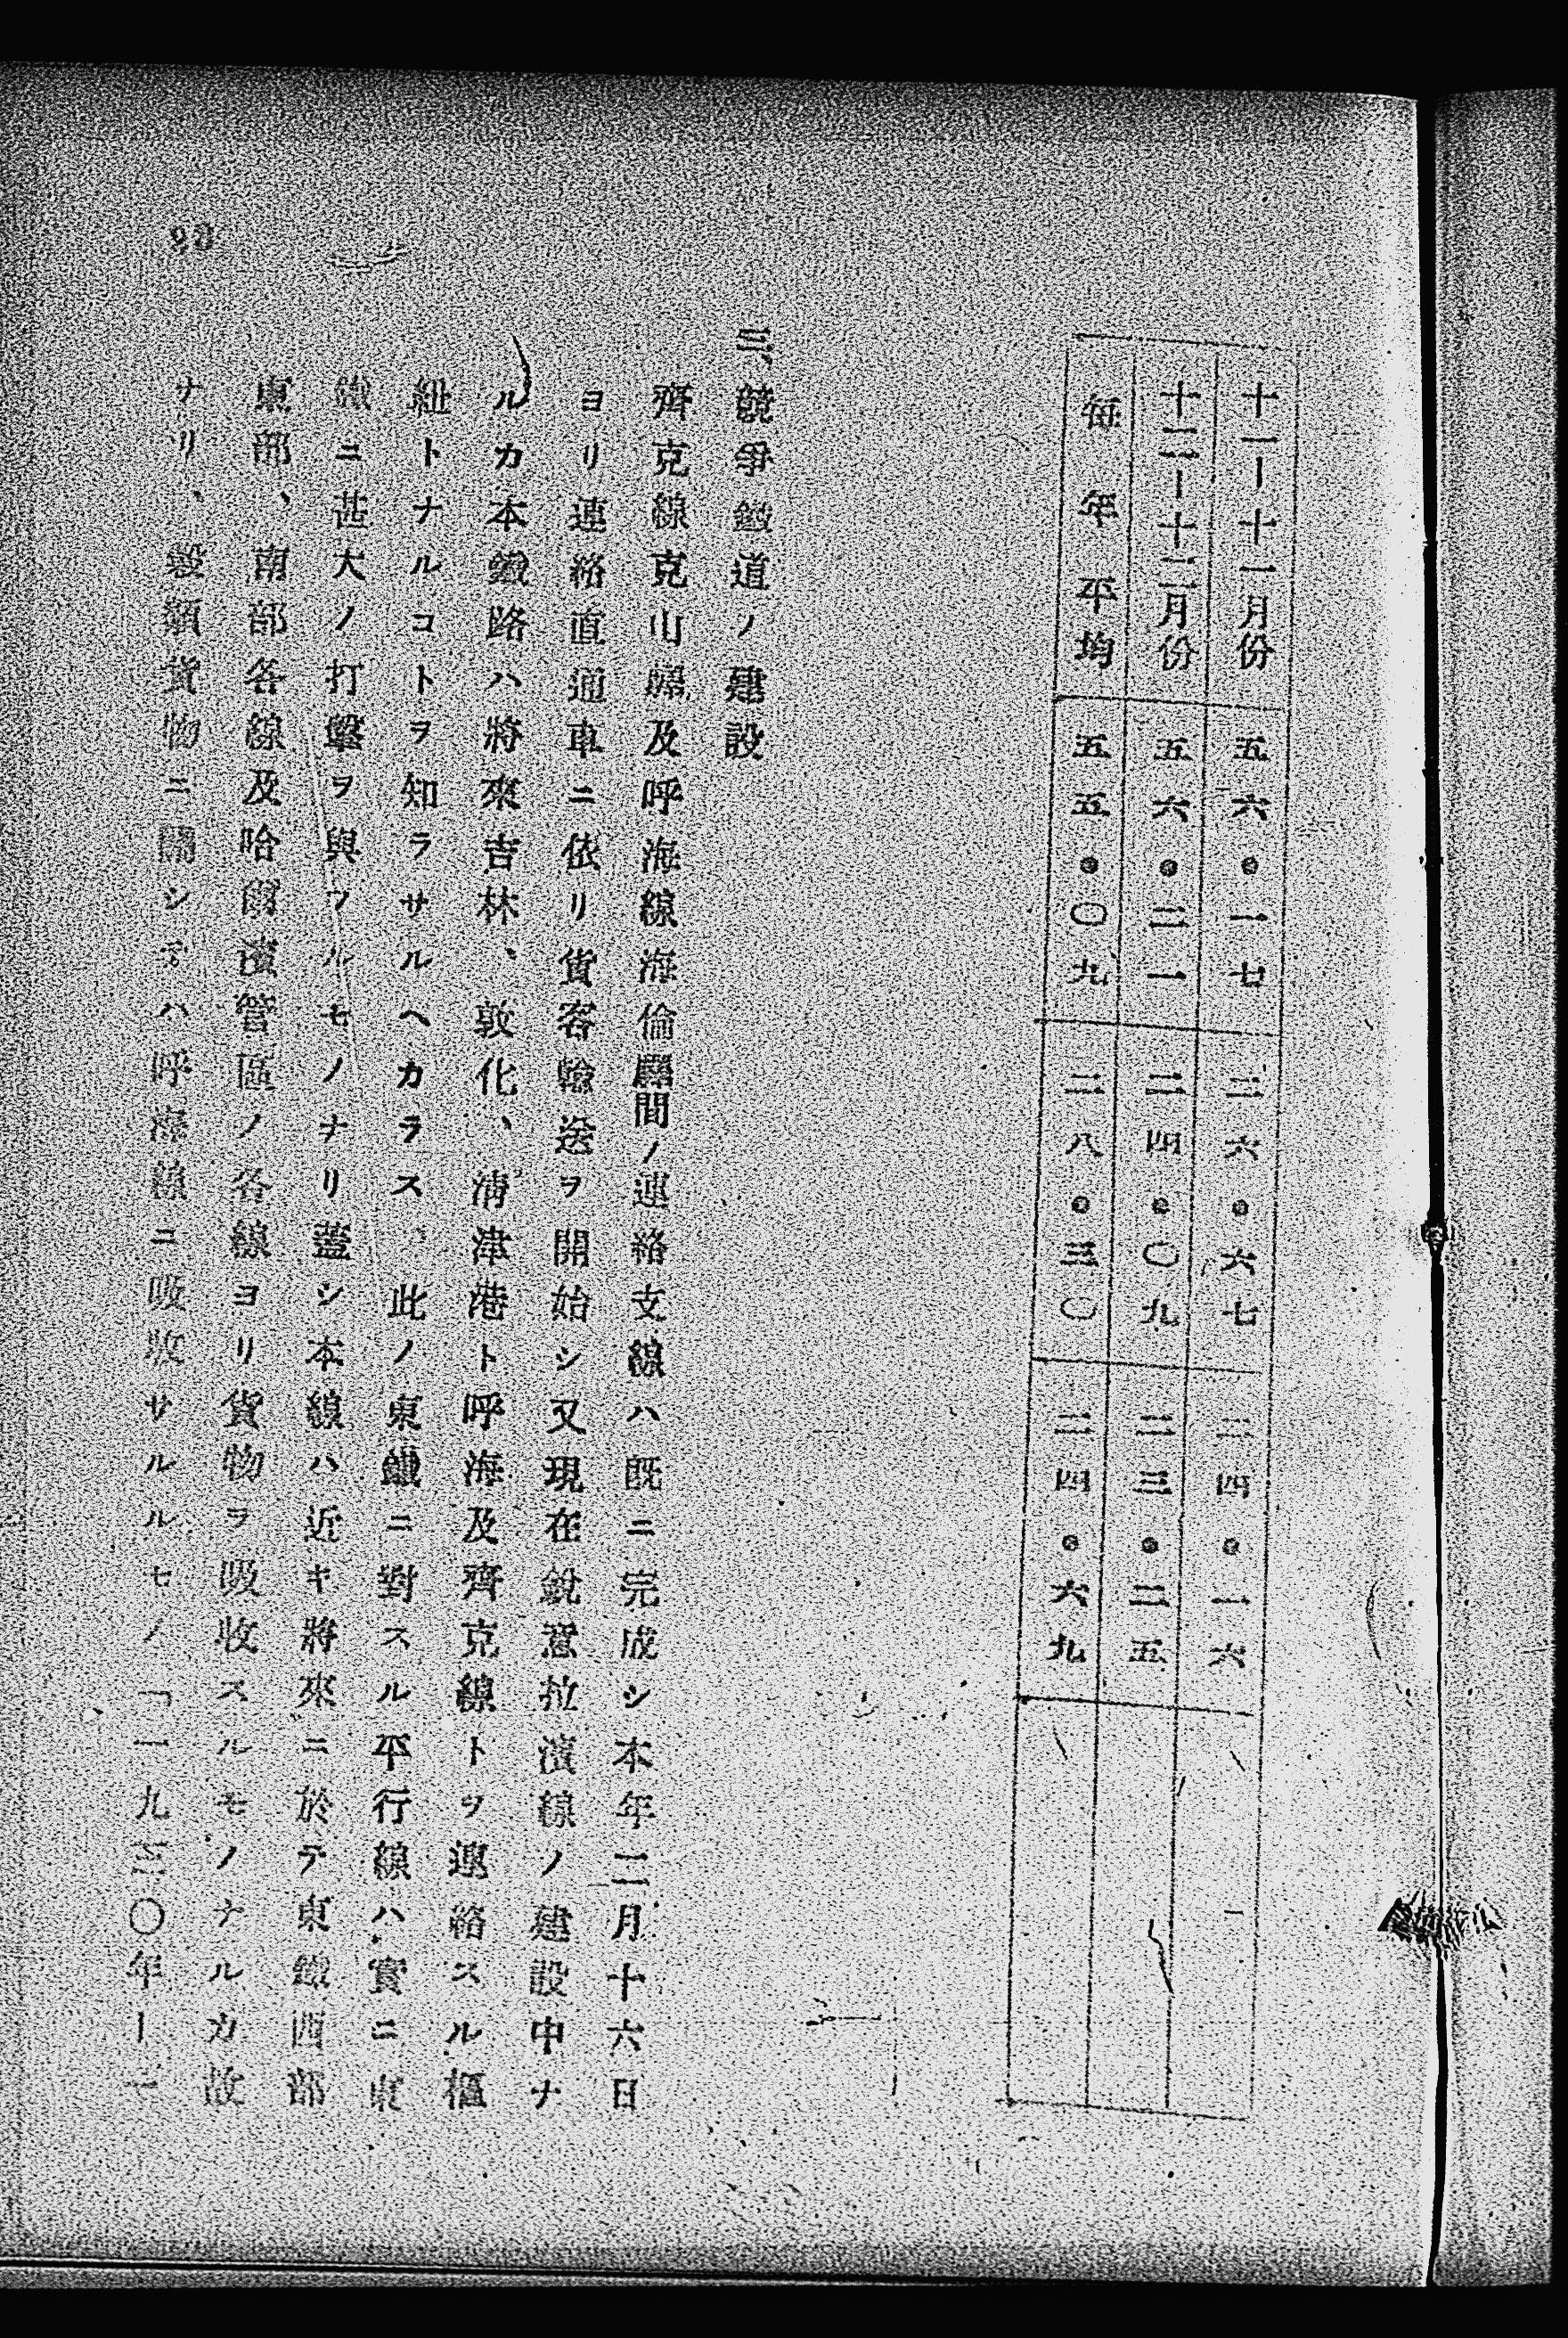 十一―十一月份 五六。一七 三六。六七 二四。一六
十二―十二月份 五六。二一 二四。〇九 二三。二五
每年平均 五五。〇九 二八。三〇 二四。六九
三、競爭鐵道ノ建設
齊克線克山縣及呼海線海倫縣間ノ連絡支線ハ既ニ完成シ本年二月十六日
ヨリ連絡直通車ニ依リ貨客輸送ヲ開始シ又現在銳意拉濱線ノ建設中ナ
ルカ本鐵路ハ將來吉林、敦化、淸津港ト呼海及齊克線トヲ連絡スル樞
紐トナルコトヲ知ラサルヘカラス、此ノ東鐵ニ對スル平行線ハ實ニ東
鐵ニ甚大ノ打擊ヲ與フルモノナリ蓋シ本線ハ近キ將來ニ於テ東鐵西部
東部、南部各線及哈爾濱管區ノ各線ヨリ貨物ヲ吸收スルモノナルカ故
ナリ、穀類貨物ニ關シテハ呼海線ニ吸收サルルモノ「一九三〇年ー一